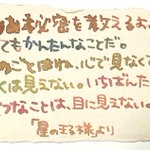 秘密を教えるよ
てもかんたんなことだ。
のごとはね、心で見なくて
くは見えない。いちばんた
つなことは、目に見えない。
「星の王子様」より